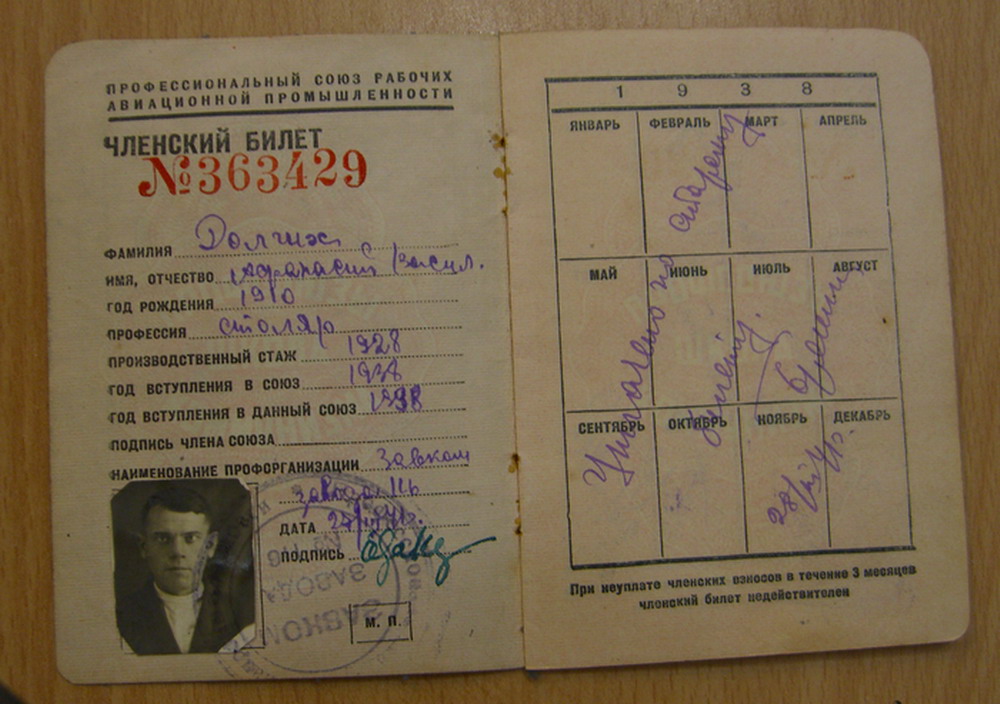 ПРОФЕССИОНАЛЬНЫЙ СОЮЗ РАБОЧИХ
АВИАЦИОННОЙ ПРОМЫШЛЕННОСТИ
ЧЛЕНСКИЙ БИЛЕТ
№363429
ФАМИЛИЯ Долгих
ИМЯ, ОТЧЕСТВО Афанасий Васил.
ГОД РОЖДЕНИЯ 1910
ПРОФЕССИЯ столяр
ПРОИЗВОДСТВЕННЫЙ СТАЖ 1928
ГОД ВСТУПЛЕНИЯ В СОЮЗ 1938
ГОД ВСТУПЛЕНИЯ В ДАННЫЙ СОЮЗ 1938
ПОДПИСЬ ЧЛЕНА СОЮЗА
НАИМЕНОВАНИЕ ПРОФОРГАНИЗАЦИИ Завком
завода
ДАТА
ПОДПИСЬ
ЗАВКОМ
ЗАВОДА
М. П.
1 9 3 8
ЯНВАРЬ ФЕВРАЛЬ МАРТ АПРЕЛЬ
МАЙ ИЮНЬ ИЮЛЬ АВГУСТ
СЕНТЯБРЬ ОКТЯБРЬ НОЯБРЬ ДЕКАБРЬ
Уплачено по старому
билету.
При неуплате членских взносов в течение 3 месяцев
членский билет недействителен